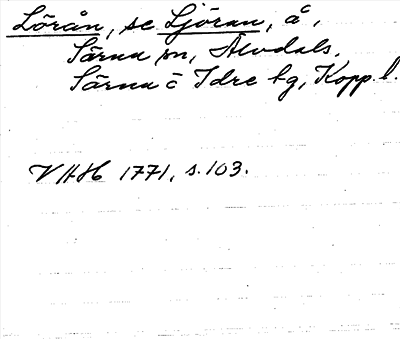 Lörån, se Ljöran, å,
Särna sn, Älvdals.
Särna o Idre tg, Kopp. l.
VHH 1771, s. 103.